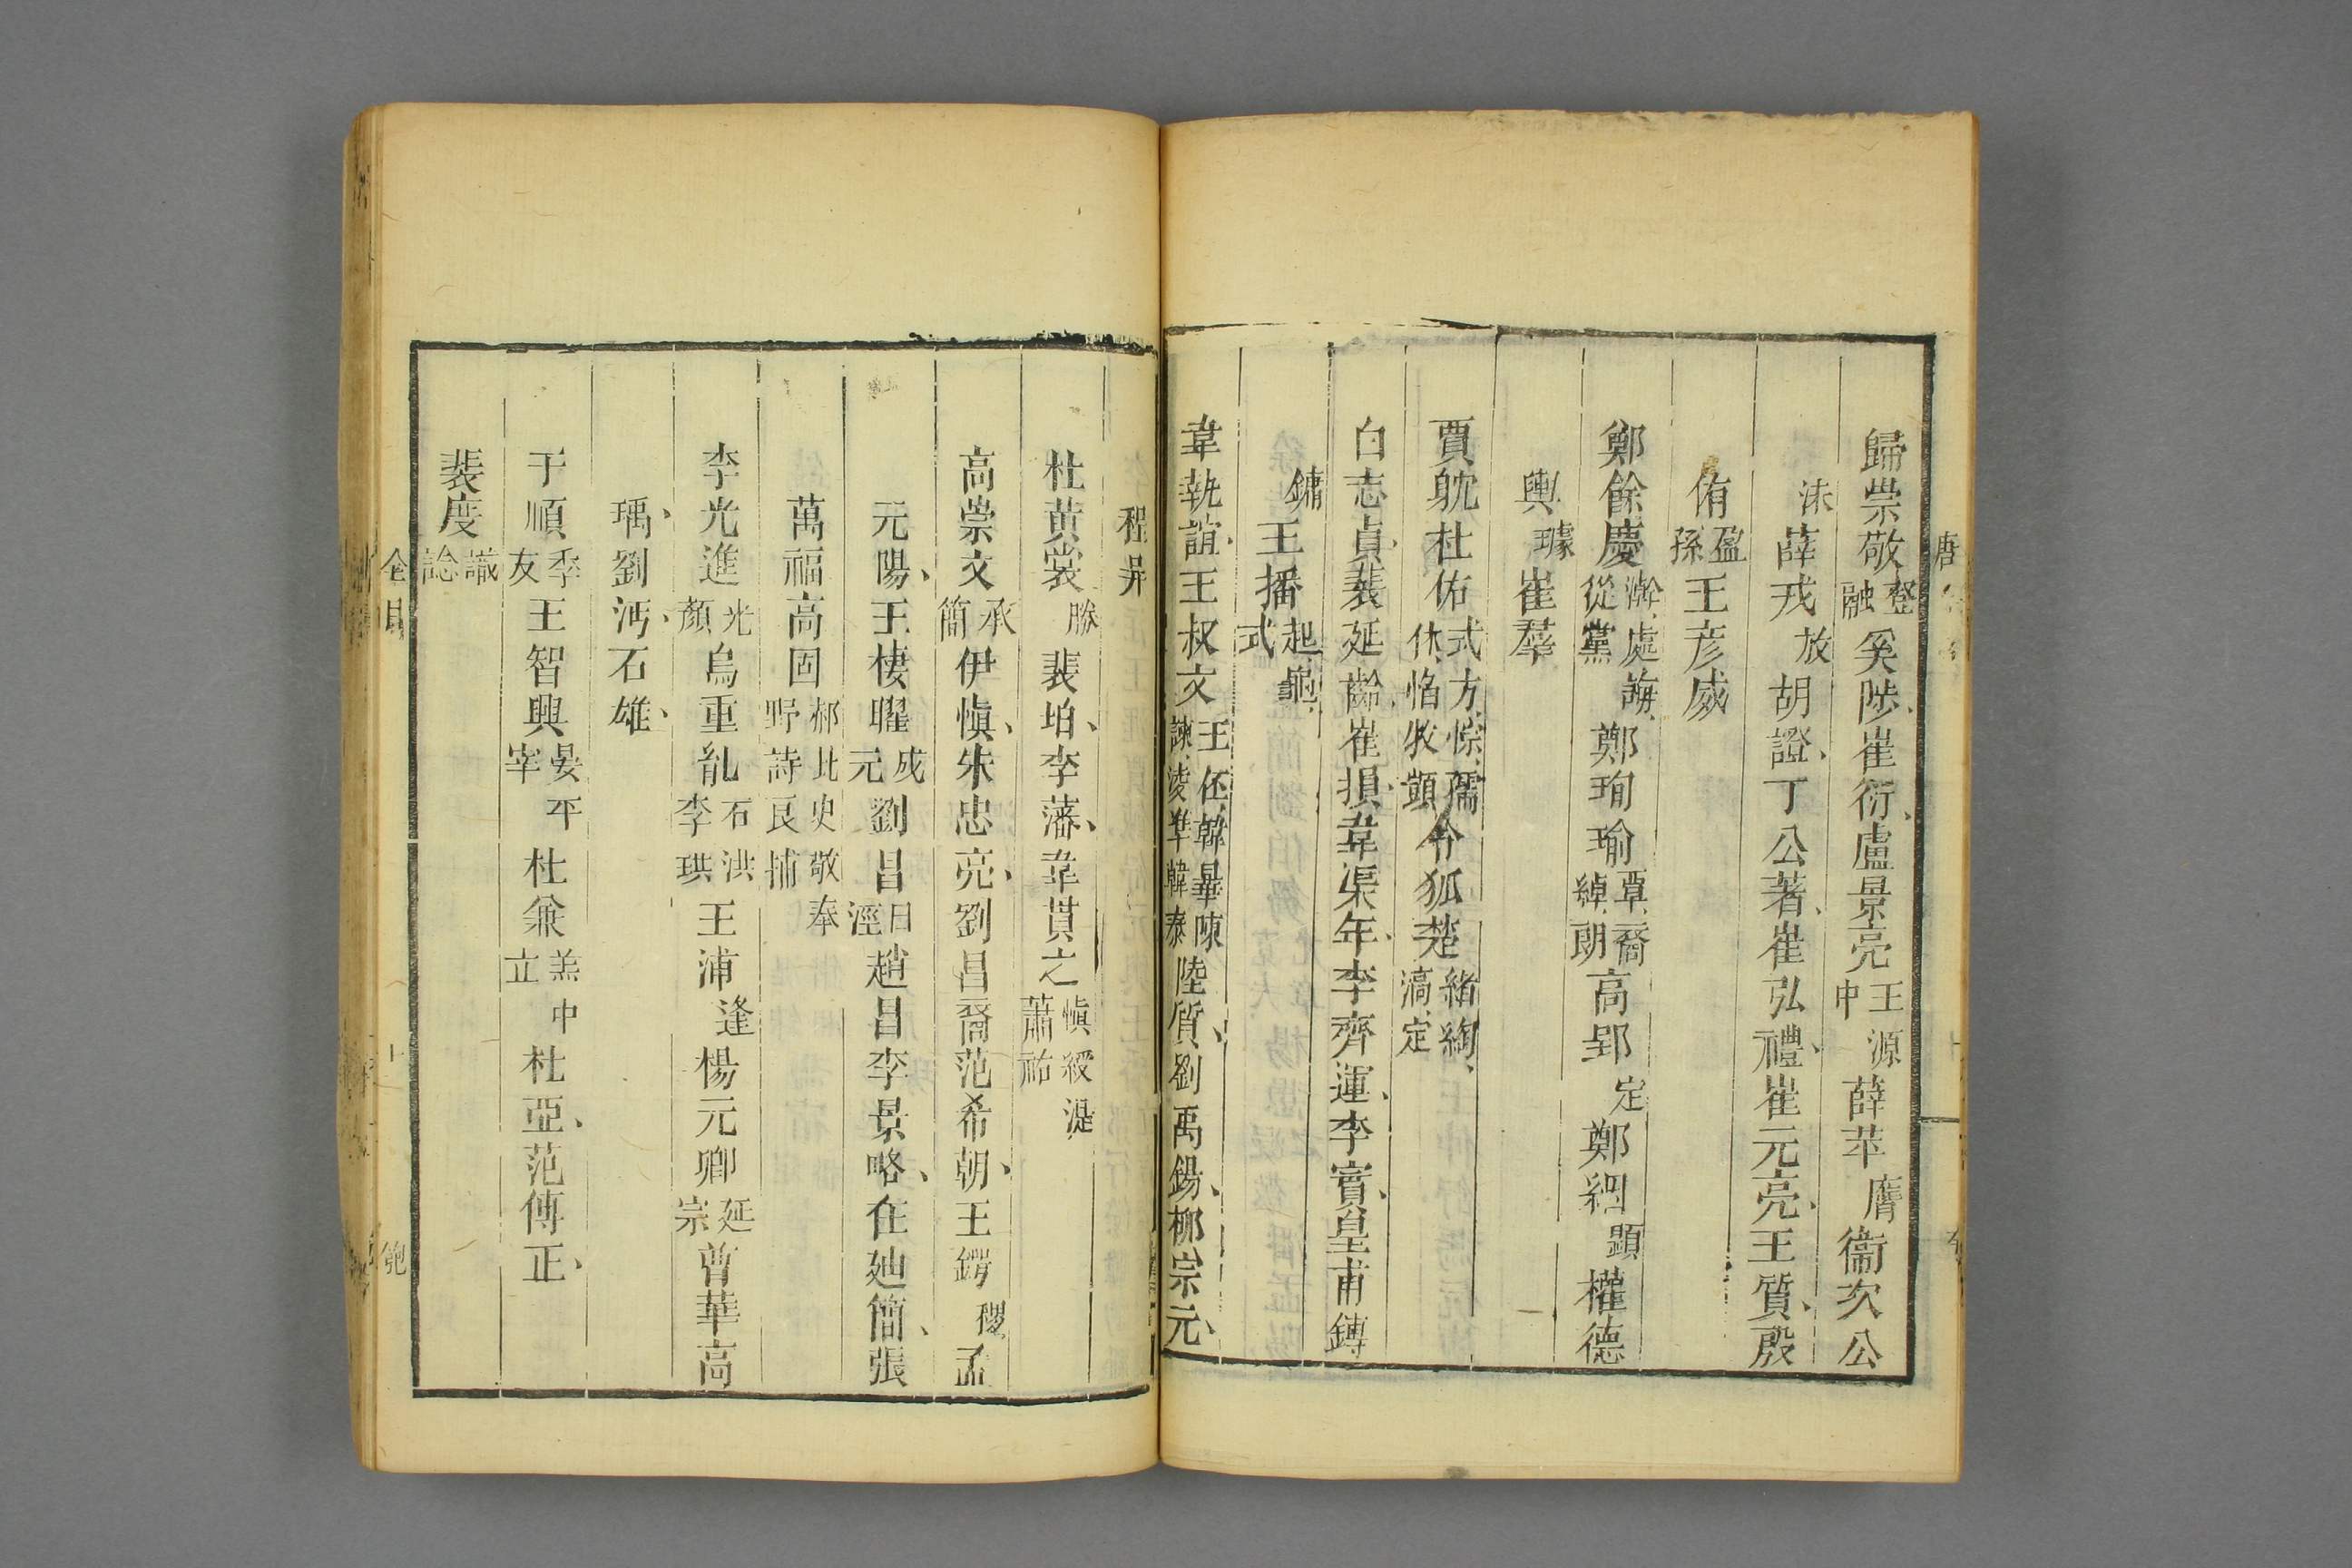 歸崇敬登融奚陟崔衍盧景亮王源中薛苹膺衞次公
洙薛戎放胡證丁公著崔弘禮崔元亮王質殷
侑盈孫王彦威
鄭餘慶澣處誨從黨鄭珣瑜覃裔綽朗高郢定鄭絪顥權德
輿璩崔羣
賈躭杜佑式方悰孺休悋牧顗令狐楚緒綯滈定
白志貞裴延齡崔損韋渠年李齊運李實皇甫鏄
鏞王播起龜式
韋執誼王叔文王伾韓曅陳諫淩準韓泰陸質劉禹錫柳宗元
程异
杜黄裳勝裴垍李藩韋貫之愼綬澳蕭祐
高崇文承簡伊愼朱忠亮劉昌裔范希朝王鍔稷孟
元陽王棲曜成元劉昌日涇趙昌李景略任廸簡張
萬福高固郝玼史敬奉野詩良捕
李光進光顏烏重胤石洪李珙王沛逢楊元卿延宗曹華高
瑀劉沔石雄
于順季友王智興晏平宰杜兼羔中立杜亞范傳正
裴度識諗
全目